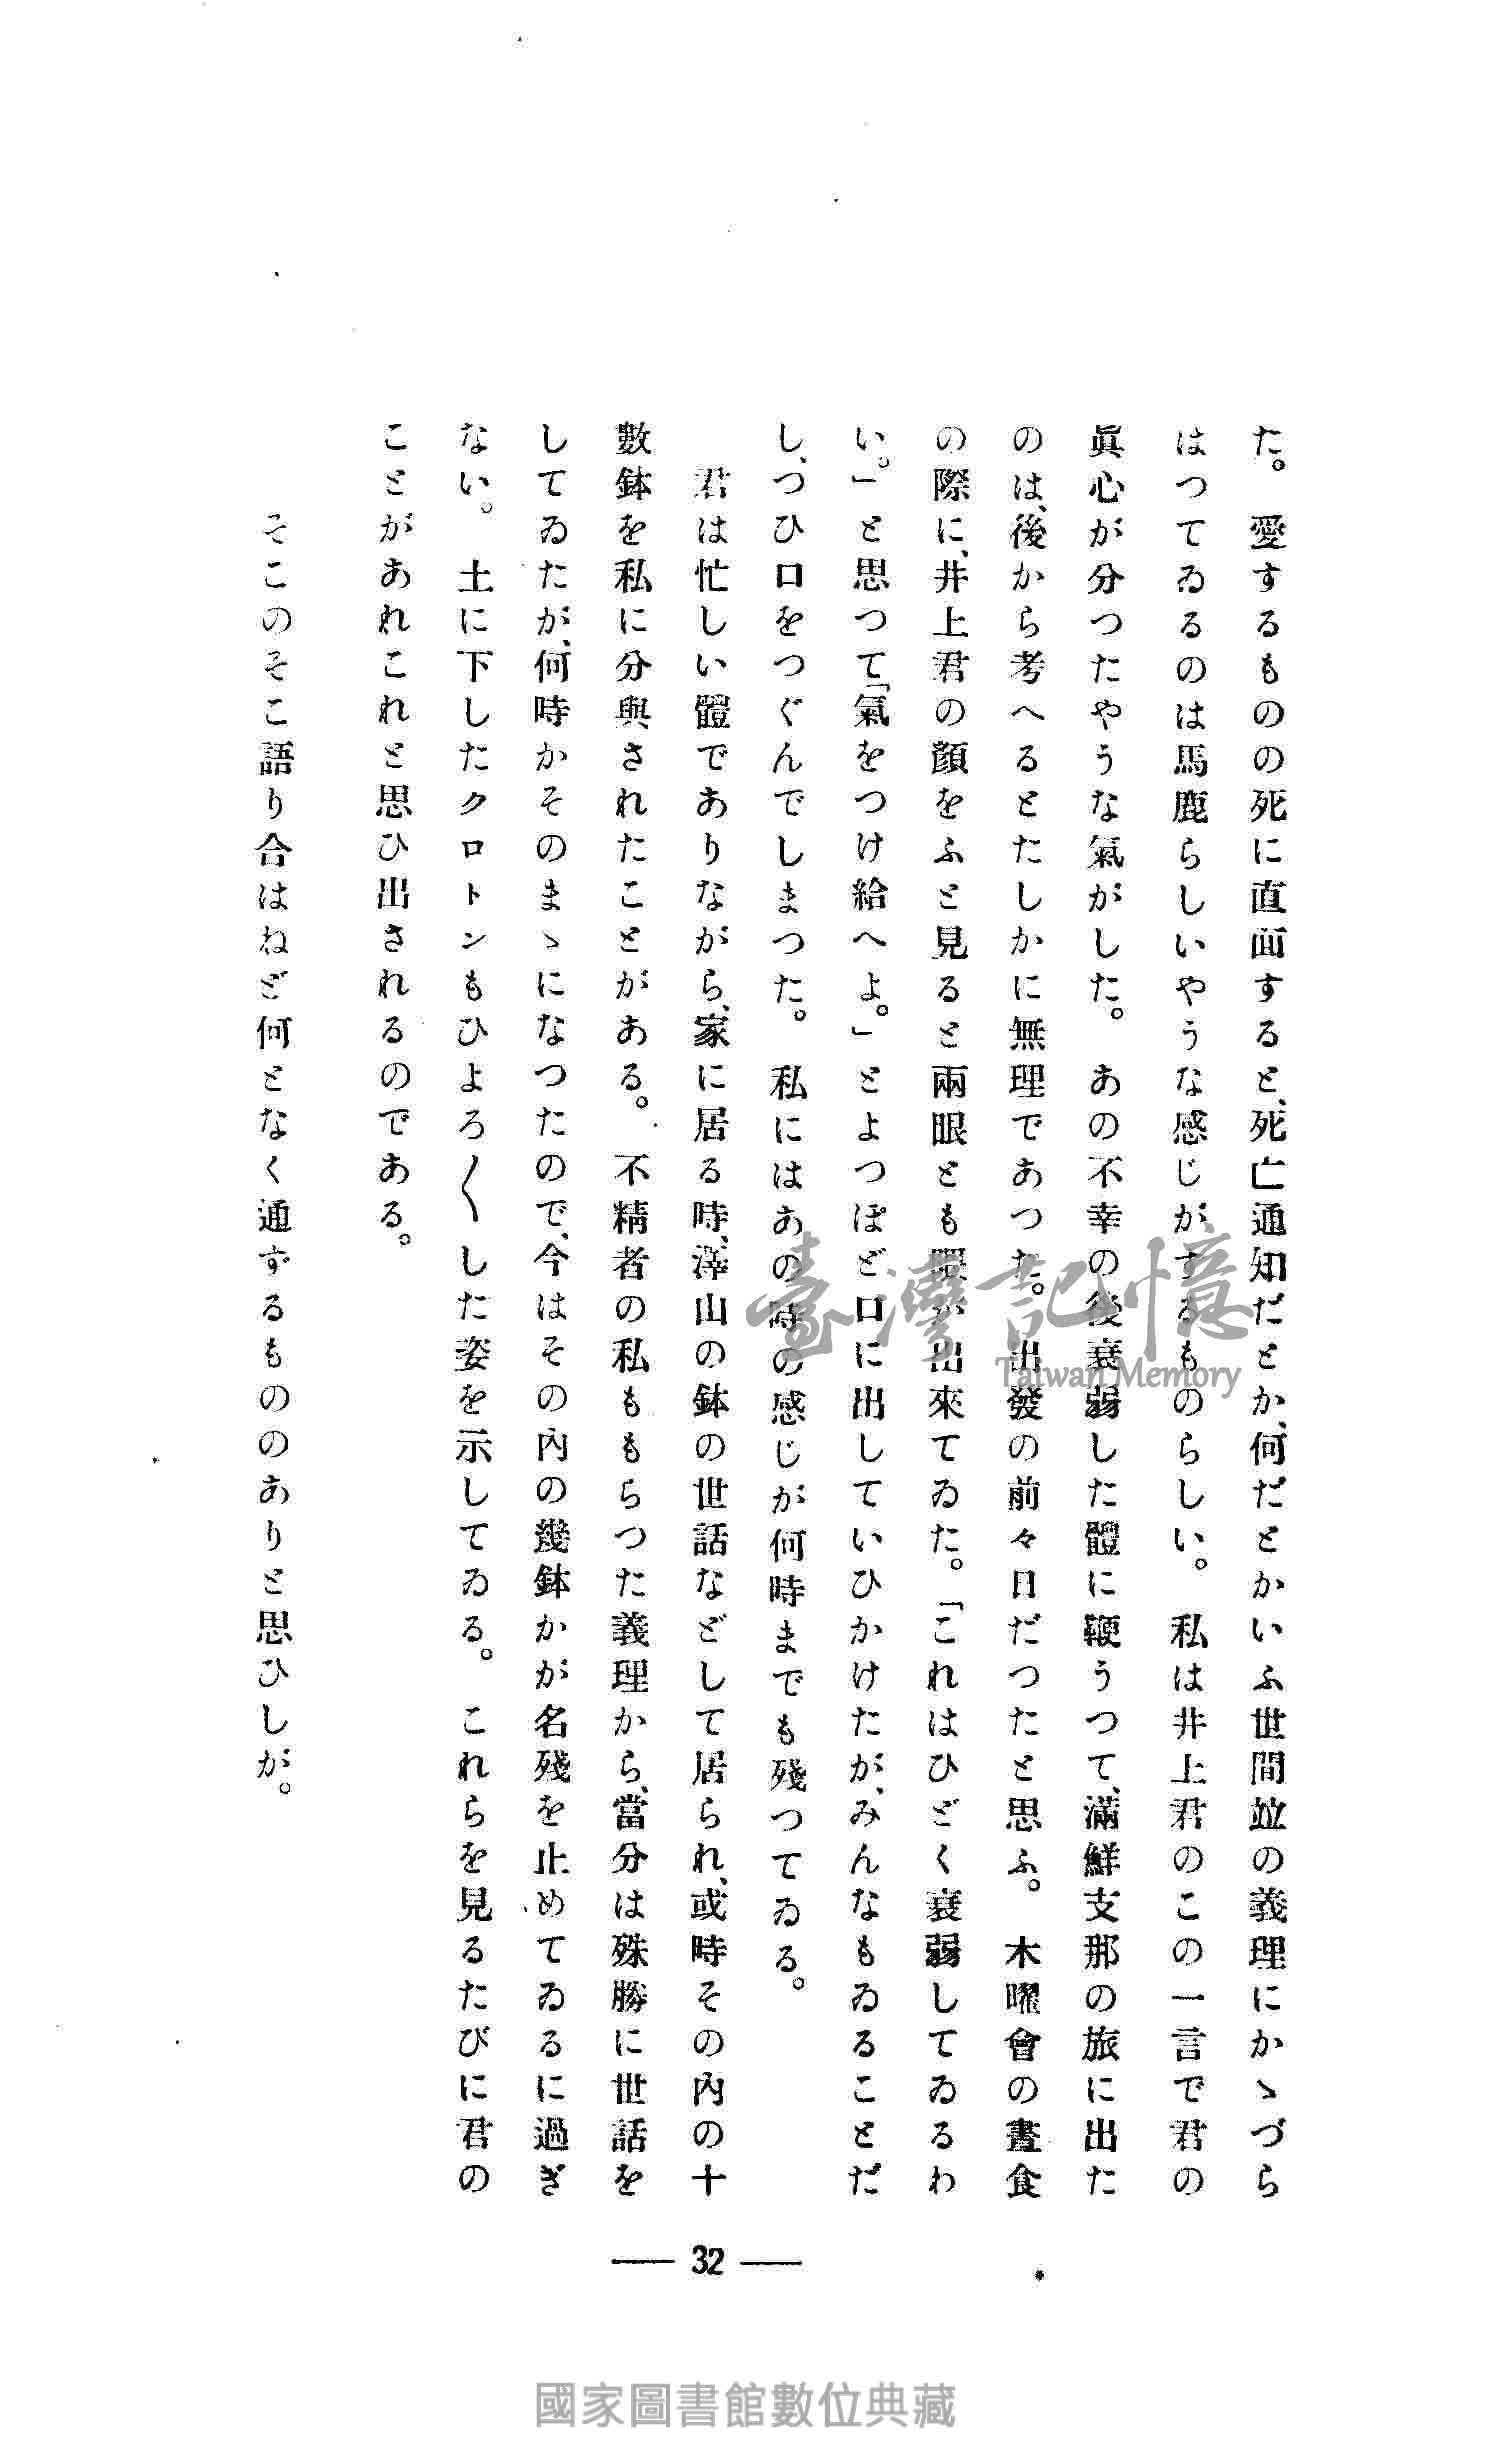 た。　愛するものの死に直面すると、死亡通知だとか、何だとかいふ世間竝の義理にかゝづら
はつてゐるのは馬鹿らしいやうな感じがするものらしい。　私は井上君のこの一言で君の
眞心が分つたやうな氣がした。　あの不幸の後衰弱した體に鞭うつて、滿鮮支那の旅に出た
のは、後から考へるとたしかに無理であつた。　出發の前々日だつたと思ふ。　木曜會の晝食
の際に、井上君の顏をふと見ると兩眼とも隈が出來てゐた。「これはひどく衰弱してゐるわ
い。」と思つて「氣をつけ給へよ。」とよつぽど口に出していひかけたが、みんなもゐることだ
し、つひ口をつぐんでしまつた。　私にはあの時の感じが何時までも殘つてゐる。
　君は忙しい體でありながら、家に居る時、澤山の鉢の世話などして居られ、或時その內の十
數鉢を私に分與されたことがある。　不精者の私ももらつた義理から、當分は殊勝に世話を
してゐたが、何時かそのまゝになつたので、今はその內の幾鉢かが名殘を止めてゐるに過ぎ
ない。　土に下したクロトンもひよろ〱した姿を示してゐる。　これらを見るたびに君の
ことがあれこれと思ひ出されるのである。
そこのそこ語り合はねど何となく通ずるもののありと思ひしが。
— 32 —
臺灣記憶
Taiwan Memory
國家圖書館數位典藏